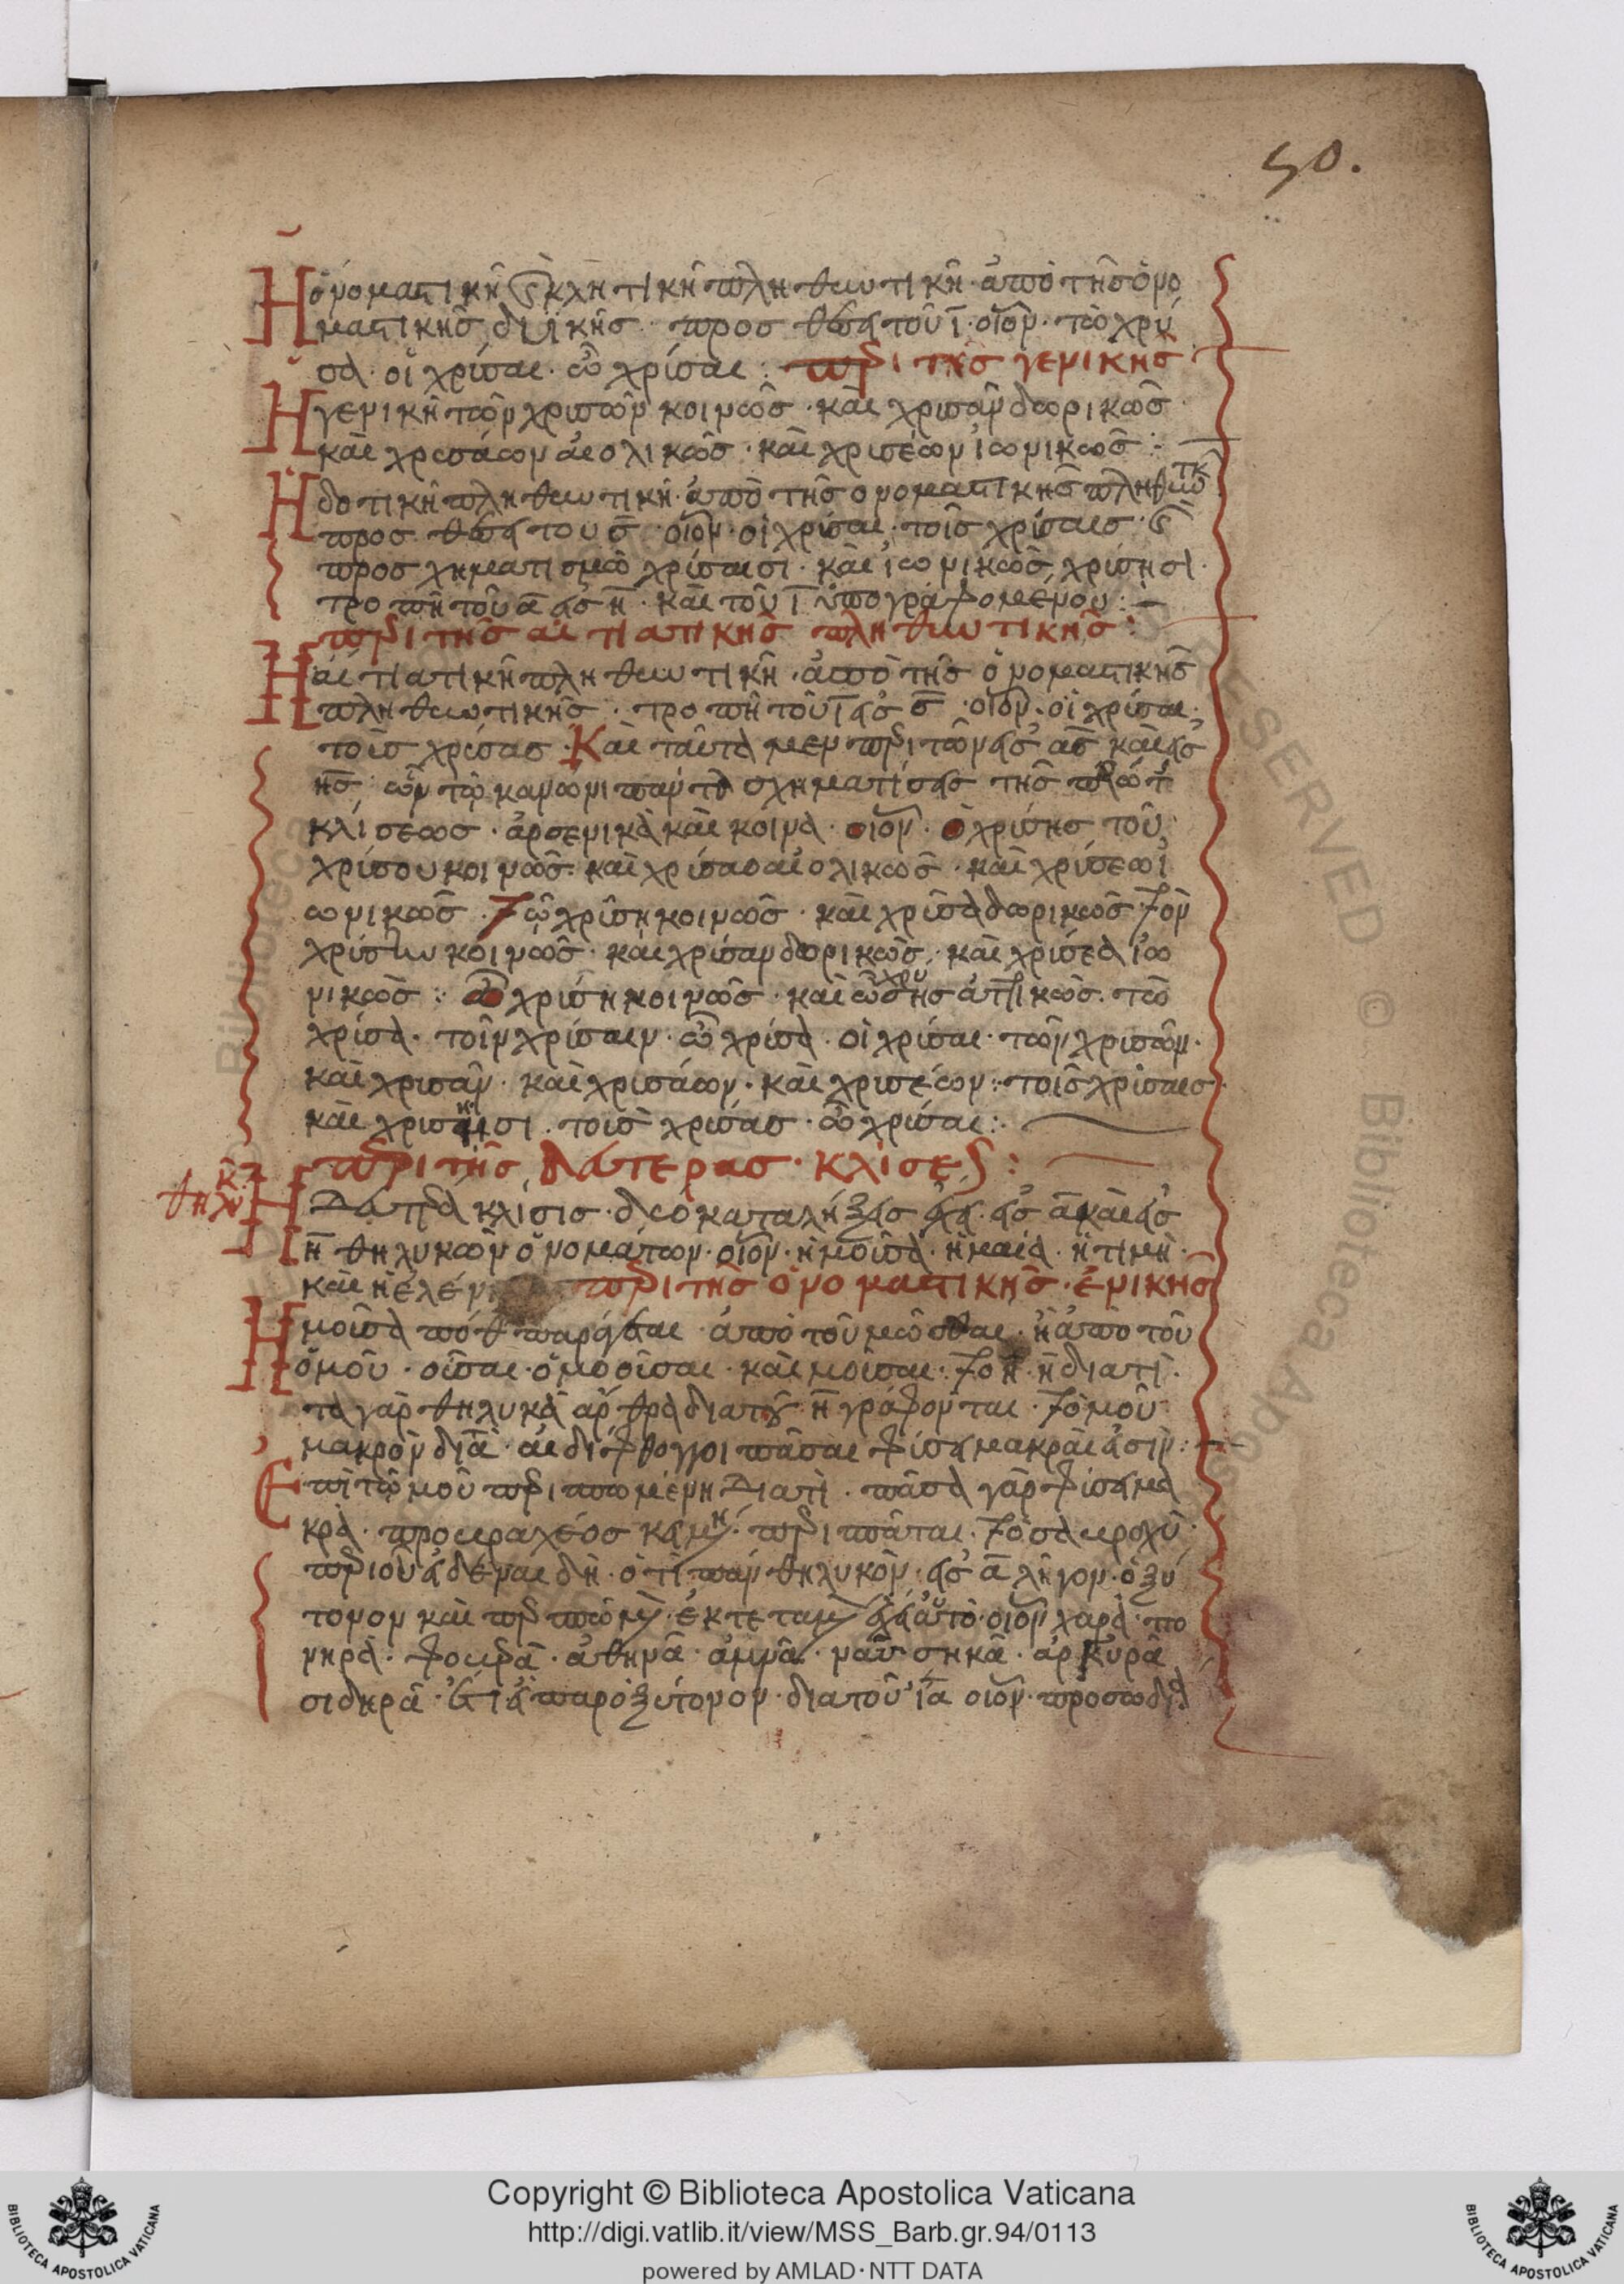 50.
Η ὀνοματικὴ καὶ κλητικὴ πληθυντικὴ· ἀπὸ τῆς ὀνο
ματικῆς δυϊκῆς· προσθέσει τοῦ ϊ· οἷον· τὼ χρύ
σα· οἱ χρύσαι· ὦ χρύσαι: περὶ τῆς γενικῆς
Η γενικὴ τῶν χρισῶν κοινῶς· καὶ χρισᾶν δωρικῶς·
καὶ χρισάων αἰολικῶς· καὶ χρισέων ἰωνικῶς:
Η δοτικὴ πληθυντικὴ· ἀπὸ τῆς ονοματικῆς πληθυντκ
προσθέσει του ς· οἷον· οἱ χρίσαι· τοῖς χρίσαις· καὶ
προσχηματισμῶ χρίσαισι· καὶ ἰωνικῶς χρίσησι·
τροπῆ τοῦ α εἰς η· καὶ τοῦ ϊ ὑπογράφομένου:
περὶ τῆς αἰτιατικῆς πληθυντικῆς:
Η αἰτιατικὴ πληθυντικὴ· ἀπὸ τῆς ὀνοματικῆς
πληθυντικῆς· τροπῆ τοῦ ϊ εἰς ς· οἷον· οἱ χρίσαι·
τοὺς χρίσας· Καὶ ταῦτα μεν περὶ τῶν εἰς ας καὶ εἰς
ης· ὧν τῶ κανώνι πάντα σχηματίσεις τῆς πρώτης
κλίσεως· ἀρσενικὰ καὶ κοινὰ· οιον· ὁ χρίσης τοῦ
χρίσου κοινῶς· καὶ χρίσαο αἰολικῶς· καὶ χρίσεω ἰ
ωνικῶς· τῶ χρίση κοινῶς· καὶ χρίσα δωρικῶς τὸν
χρίσην κοινῶς· καὶ χρίσαν δωρικῶς· καὶ χρίσεα ἰω
νικῶς: ὦ χρίση κοινῶς· καὶ ὦ χρύσης ἀττικῶς· τὼ
χρίσα· τοῖν χρίσαιν· ὦ χρίσα· οἱ χρίσαι· τῶν χρισῶν·
καὶ χρισᾶν· καὶ χρισάων· καὶ χρισέων: τοῖς χρίσαις
καὶ χρισησι· τους χρίσας· ὦ χρίσαι:
περὶ τῆς δευτερας· κλίσεως:
θηλυκ
Η Δευτέρα κλίσις· δύο καταλήξεις ἔχει· εἰς α καὶ εἰς
η θηλυκῶν ὀνομάτων· οἷον· ἡ μοῦσα· ἡ μαία· ἡ τιμὴ·
καὶ ἡ ἑλέν περὶ τῆς ὀνοματικῆς· ἑνικῆς
Η μοῦσα πόθεν παράγεται ἀπὸ τοῦ μῶσθαι· ἢ ἀπο τοῦ
ὁμοῦ· οὖσαι· ὁμοοῦσαι· καὶ μοῦσαι: τὸ η· η διατὶ·
τὰ γὰρ θηλυκὰ ἄρθρα διατοῦ η γράφονται· τὸ μοῦ
μακρὸν διατὶ· αἱ δίφθογγοι πᾶσαι φύσει μακραὶ εἰσὶν:
Επὶ τῶ μοῦ περισπωμένη Διατὶ· πᾶσα γὰρ φύσει μα
κρὰ· προ βραχέος κειμένη· περισπᾶται· τὸ σα βραχὺ·
περὶ οὗ εἰδέναι δὴ· ὁτὶ παν θηλυκὸν· εἰς α λῆγον· ὀξύ
τονον καὶ περισπώμενον ἐκτεταμένον ἔχει αὐτὸ· οιον χαρὰ· πο
νηρὰ· φουρᾶ· ἀθηνᾶ· ἀμμᾶ· ναυσηκᾶ· ἀρκυρᾶ
σιδηρᾶ· ἔτι παρὸξύτονον· διατοῦ ια οιον· προσωδία
Copyright © Biblioteca Apostolica Vaticana
http://digi.vatlib.it/view/MSS_Barb.gr.94/0113
powered by AMLAD·NTT DATA
BIBLIOTECA APOSTOLICA VATICANA
BIBLIOTECA APOSTOLICA VATICANA